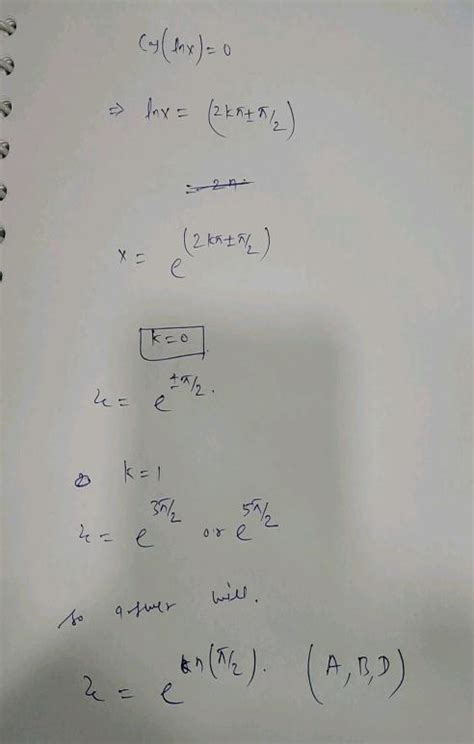 Cos(lnx)=0
⇒ lnx = (2kπ±π/2)
= 2π
x = e^(2kπ±π/2)
k=0
x = e^±π/2.
k=1
x = e^3π/2 or e^5π/2
so answer will.
x = e^n(π/2). (A,B,D)